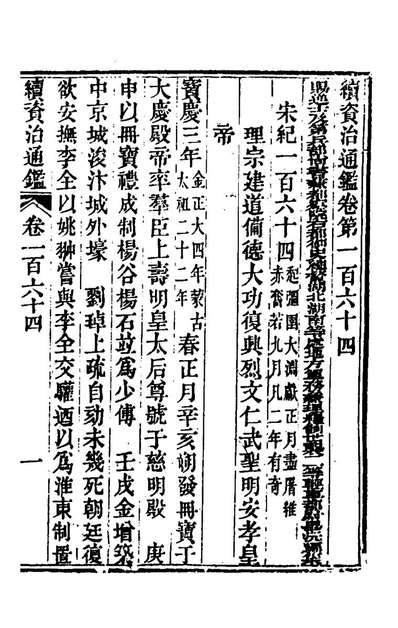 續資治通鑑卷第一百六十四
宋紀一百六十四起彊圉大淵獻正月盡屠維赤奮若九月凡二年有奇
理宗建道備德大功復興烈文仁武聖明安孝皇
帝
寶慶三年金正大四年蒙古太祖二十二年春正月辛亥朔發冊寶于
大慶殿帝率羣臣上壽明皇太后尊號于慈明殿　庚
申以冊寶禮成制楊谷楊石竝爲少傳　壬戌金增築
中京城浚汴城外壕　劉琸上疏自劾未幾死朝廷復
欲安撫李全以姚翀嘗與李全交驩迺以爲淮東制置
續資治通鑑　卷一百六十四　一